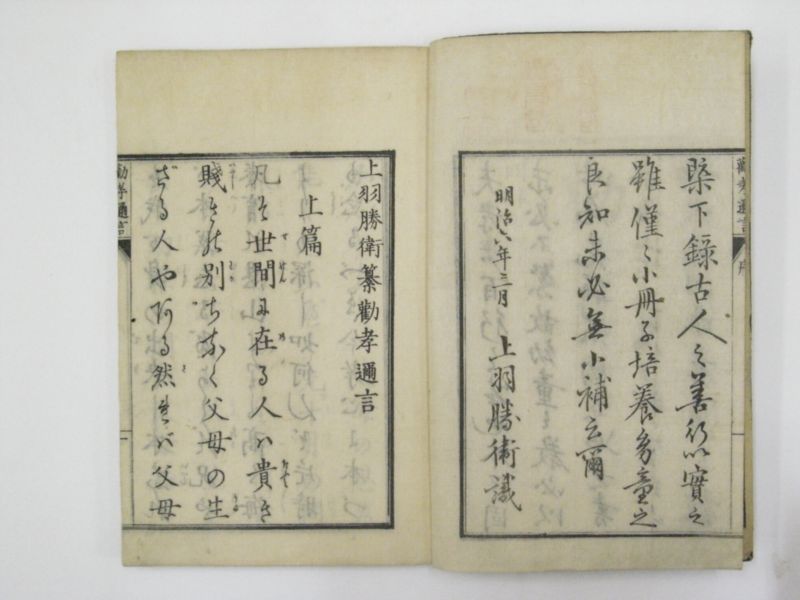 槩下録古人之善行以實之
雖僅〻小冊子培養多童之
良知未必無小補云爾
明治六年三月 上羽勝衛識
勸孝邇言
序
上羽勝衛纂勸孝邇言
上篇
凡そ世間に在る人ハ貴き
賤きの別ちなく父母の生
ざる人や阿る然れバ父母
勸孝邇言